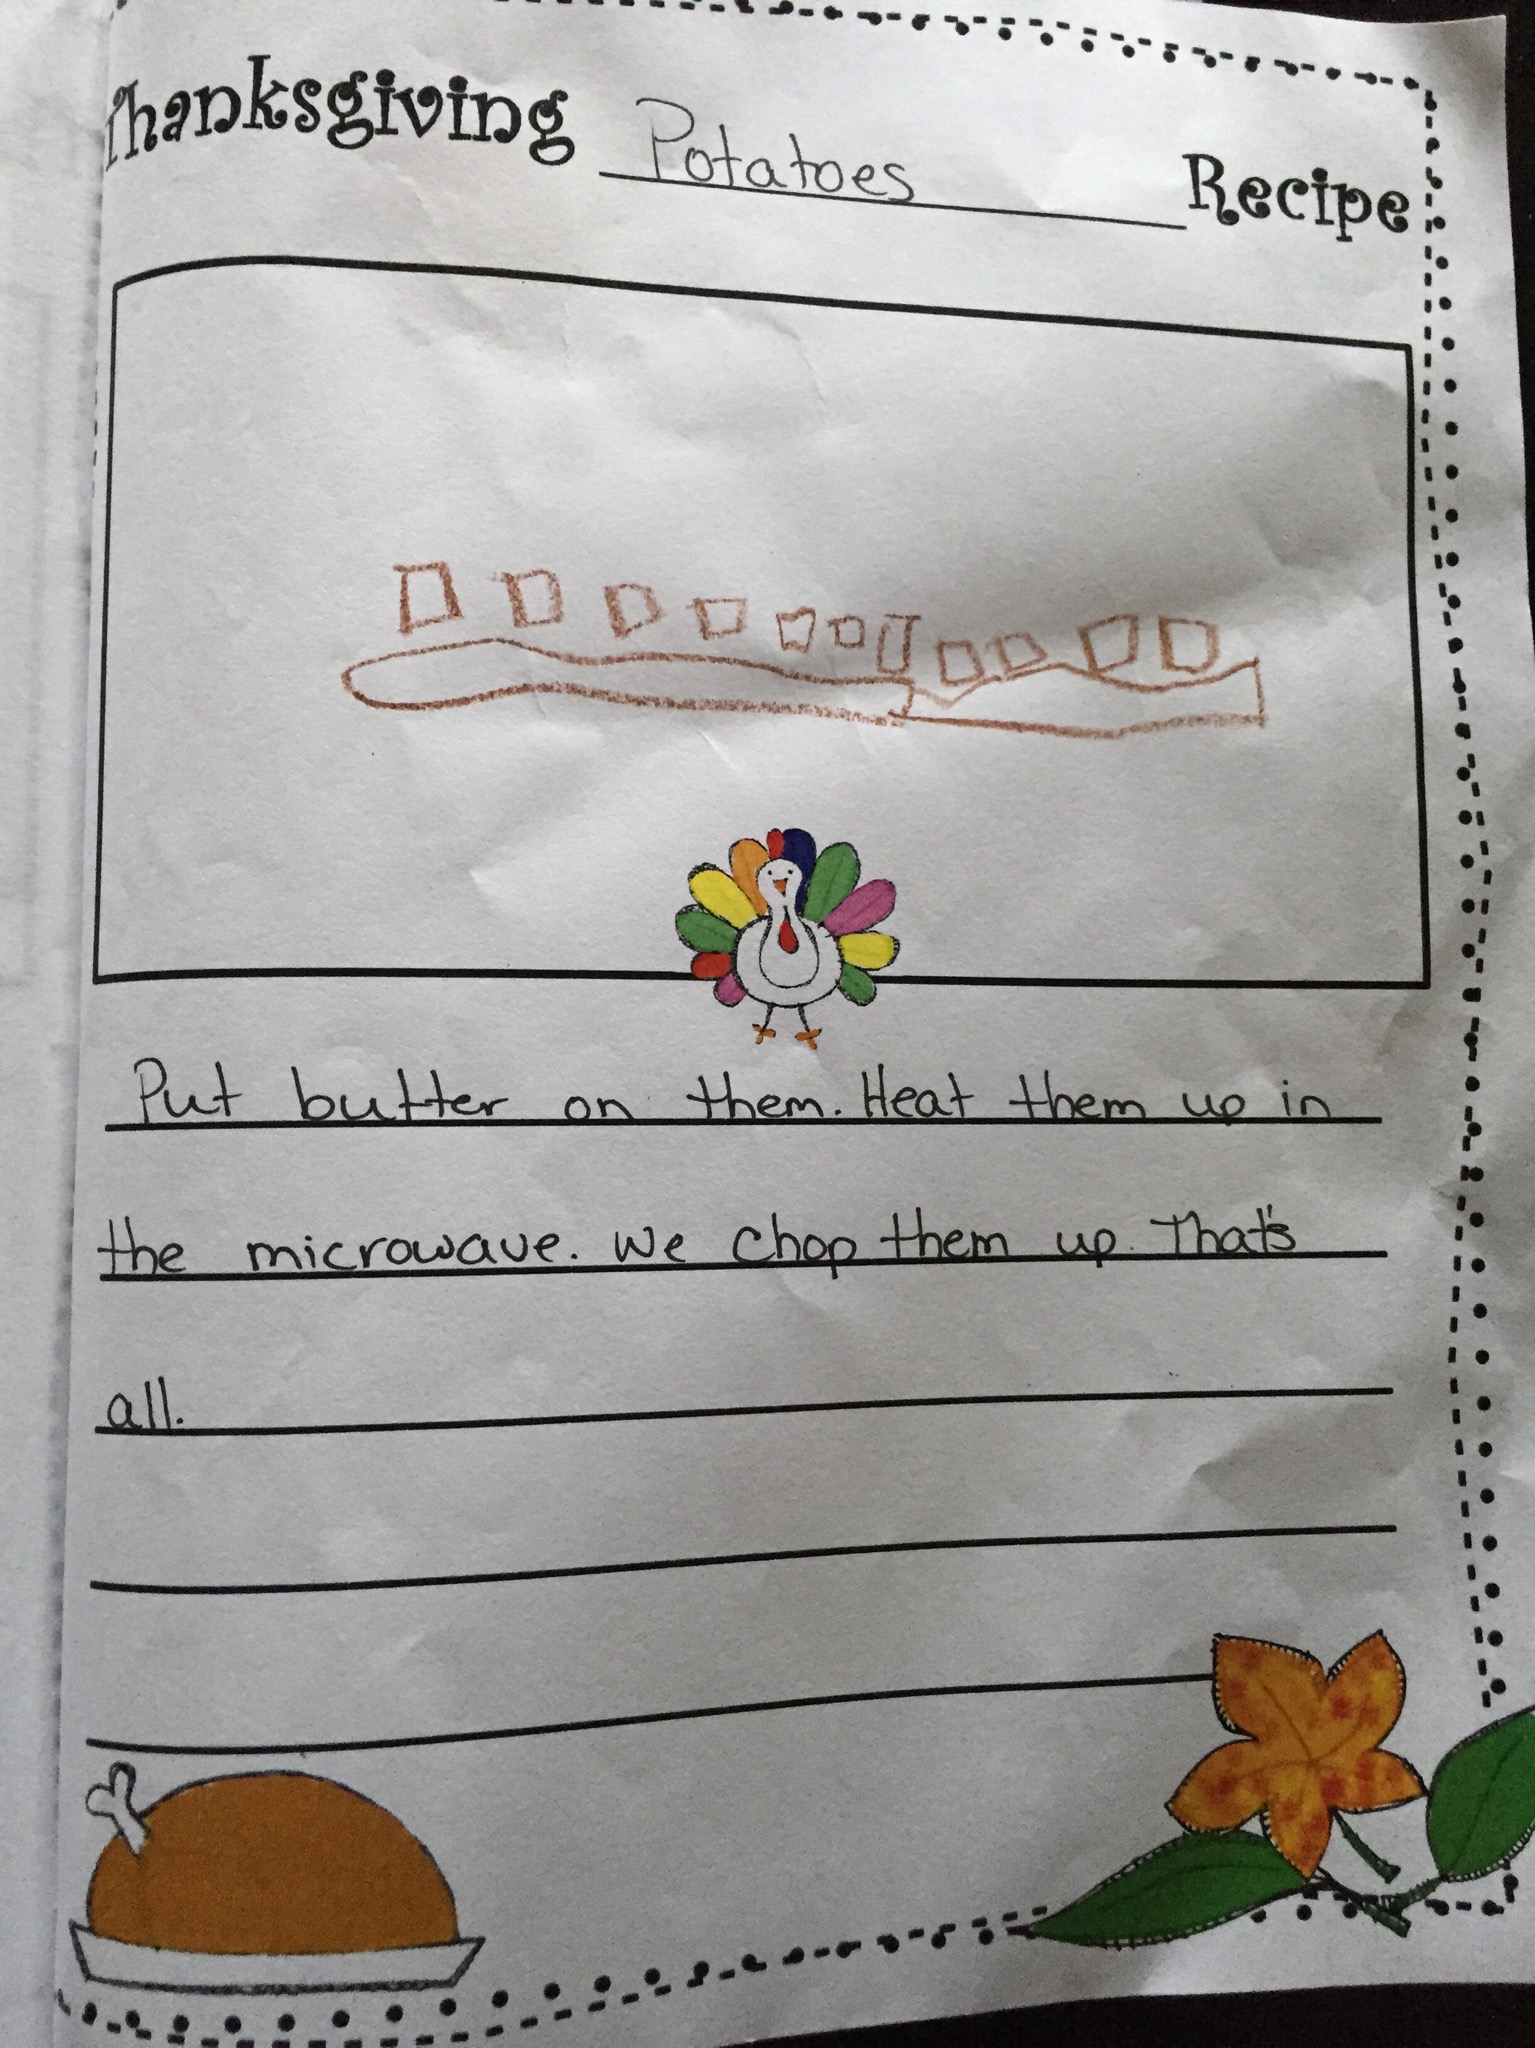 Thanksgiving Potatoes Recipe
Put butter on them. Heat them up in
the microwave. We chop them up. That's
all.